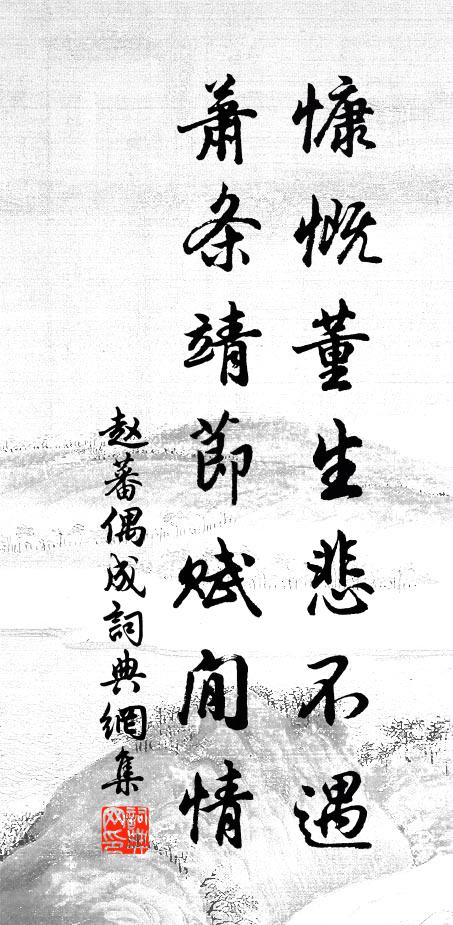 慷慨董生悲不遇
萧条靖節赋闲情
赵蕃偶成詞典網集